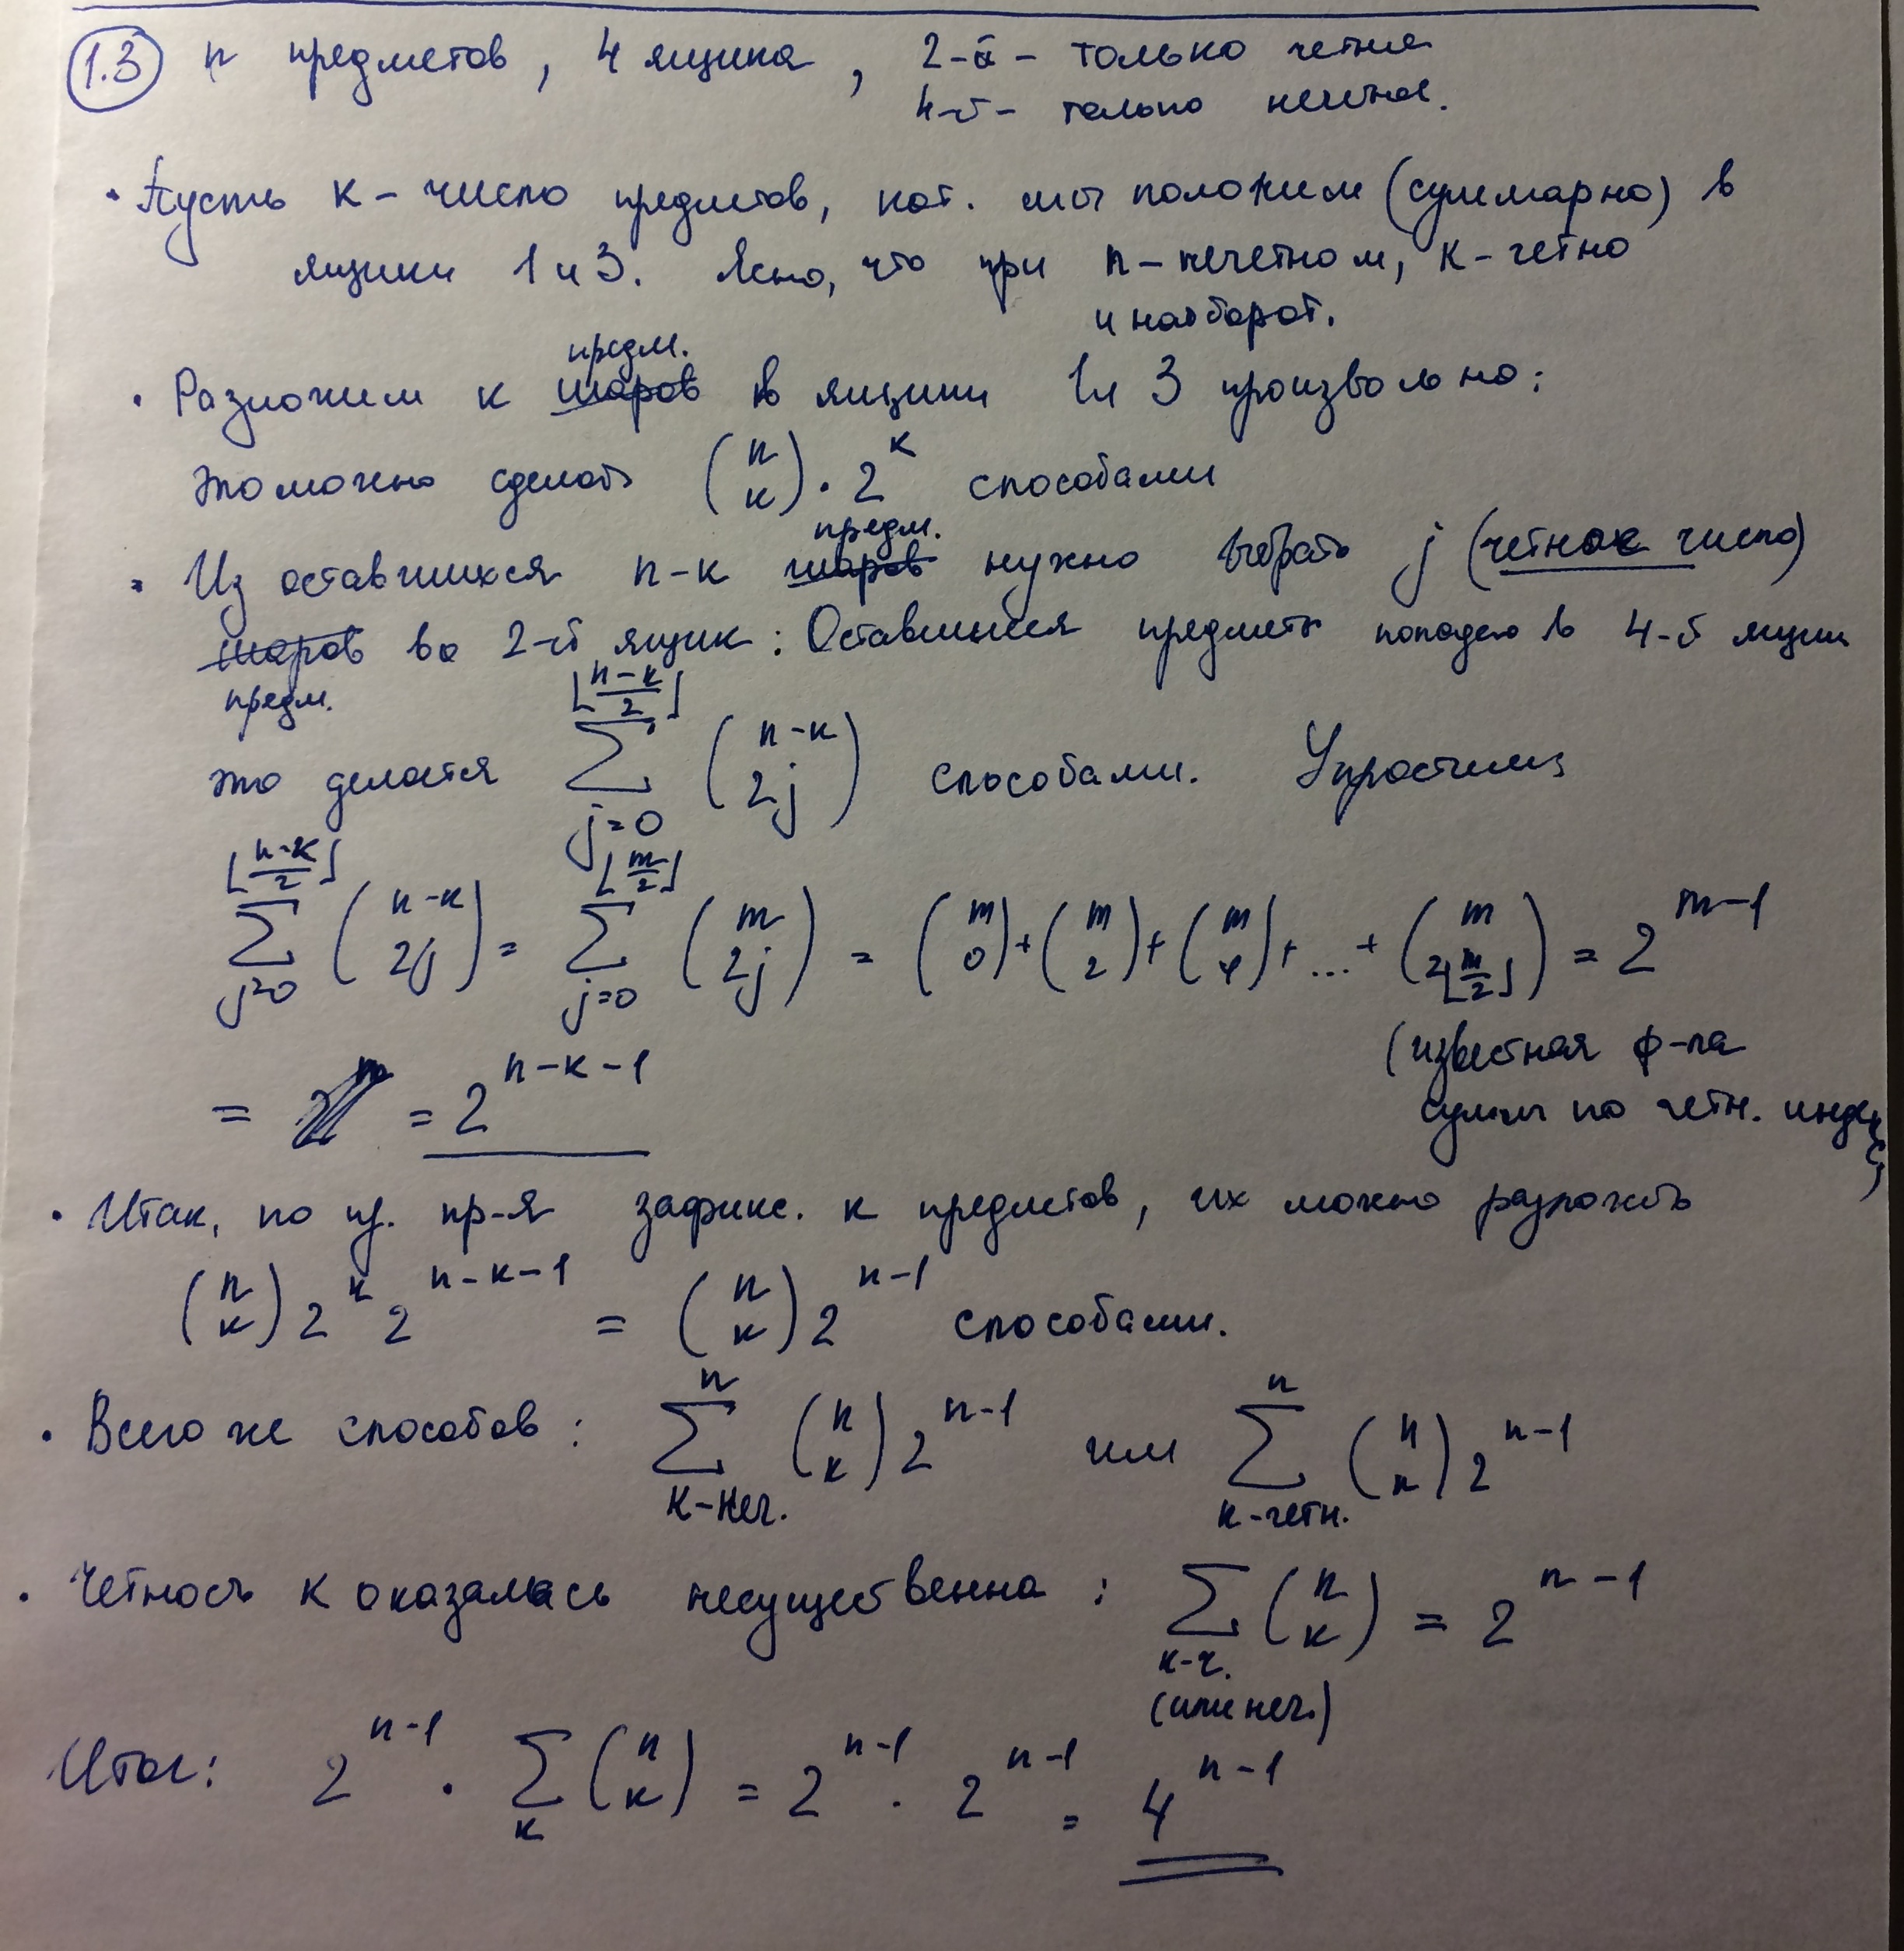 1.3 n предметов, 4 ящика, 2-й - только четные
4-й - только нечетное.
• Пусть k - число предметов, кот. мы положим (суммарно) в
ящики 1 и 3. Ясно, что при n - нечетном, k - четно
и наоборот.
предм.
• Разложим k шаров в ящики 1 и 3 произвольно:
это можно сделать (n k) · 2^k способами
предм.
• Из оставшихся n-k шаров нужно выбрать j (четное число)
шаров во 2-й ящик: Оставшиеся предметы попадею в 4-й ящик
предм.
это делается ∑_{j=0}^{⌊(n-k)/2⌋} (n-k 2j) способами. Упростим:
∑_{j=0}^{⌊(n-k)/2⌋} (n-k 2j) = ∑_{j=0}^{⌊m/2⌋} (m 2j) = (m 0) + (m 2) + (m 4) + ... + (m 2⌊m/2⌋) = 2^{m-1}
(известная ф-ла
суммы по четн. индекс)
= = 2^{n-k-1}
• Итак, по пр. пр-я зафикс. k предметов, их можно разложить
(n k) 2^k 2^{n-k-1} = (n k) 2^{n-1} способами.
• Всего же способов: ∑_{k-неч.}^{n} (n k) 2^{n-1} или ∑_{k-четн.}^{n} (n k) 2^{n-1}
• Четность k оказалась несущественна: ∑_{k-ч. (или неч.)} (n k) = 2^{n-1}
Итог: 2^{n-1} · ∑_k (n k) = 2^{n-1} · 2^{n-1} = 4^{n-1}